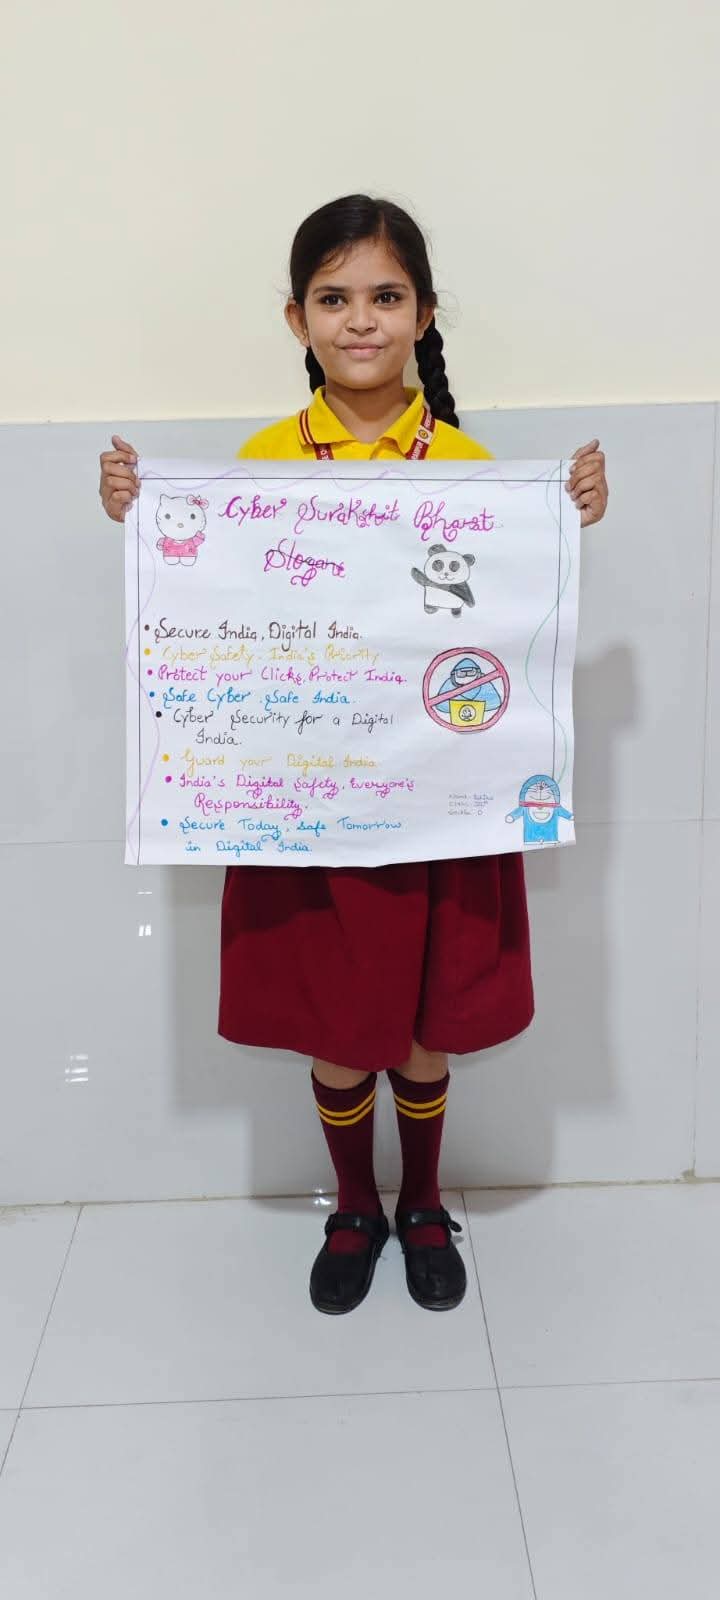 Cyber Surakshit Bharat
Slogans
• Secure India, Digital India.
• Cyber Safety, India's Priority
• Protect your Clicks, Protect India.
• Safe Cyber, Safe India.
• Cyber Security for a Digital
India.
• Guard your Digital India
• India's Digital Safety, Everyone's
Responsibility.
• Secure Today, Safe Tomorrow
in Digital India.
Name-
Class-
Section- D